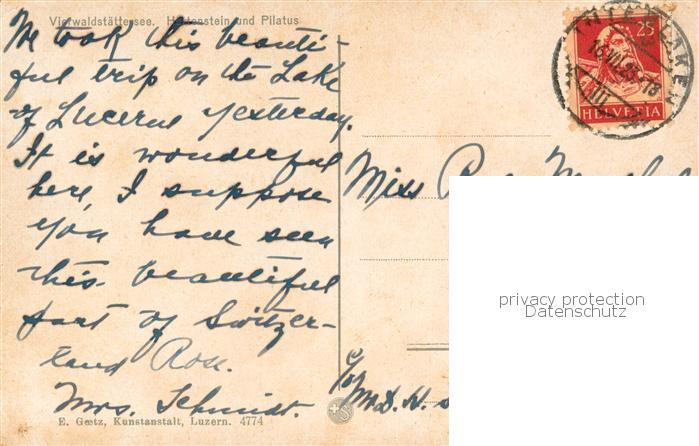 Vierwaldstättersee. Hertenstein und Pilatus
We took this beauti-
ful trip on the Lake
of Lucerne yesterday.
It is wonderful
here, I suppose
you have seen
this beautiful
part of Switzer-
land Rose.
Mrs. Schmidt.
E. Goetz, Kunstanstalt, Luzern. 4774
25
HELVETIA
INTERLAKEN
Miss
privacy protection
Datenschutz
c/o